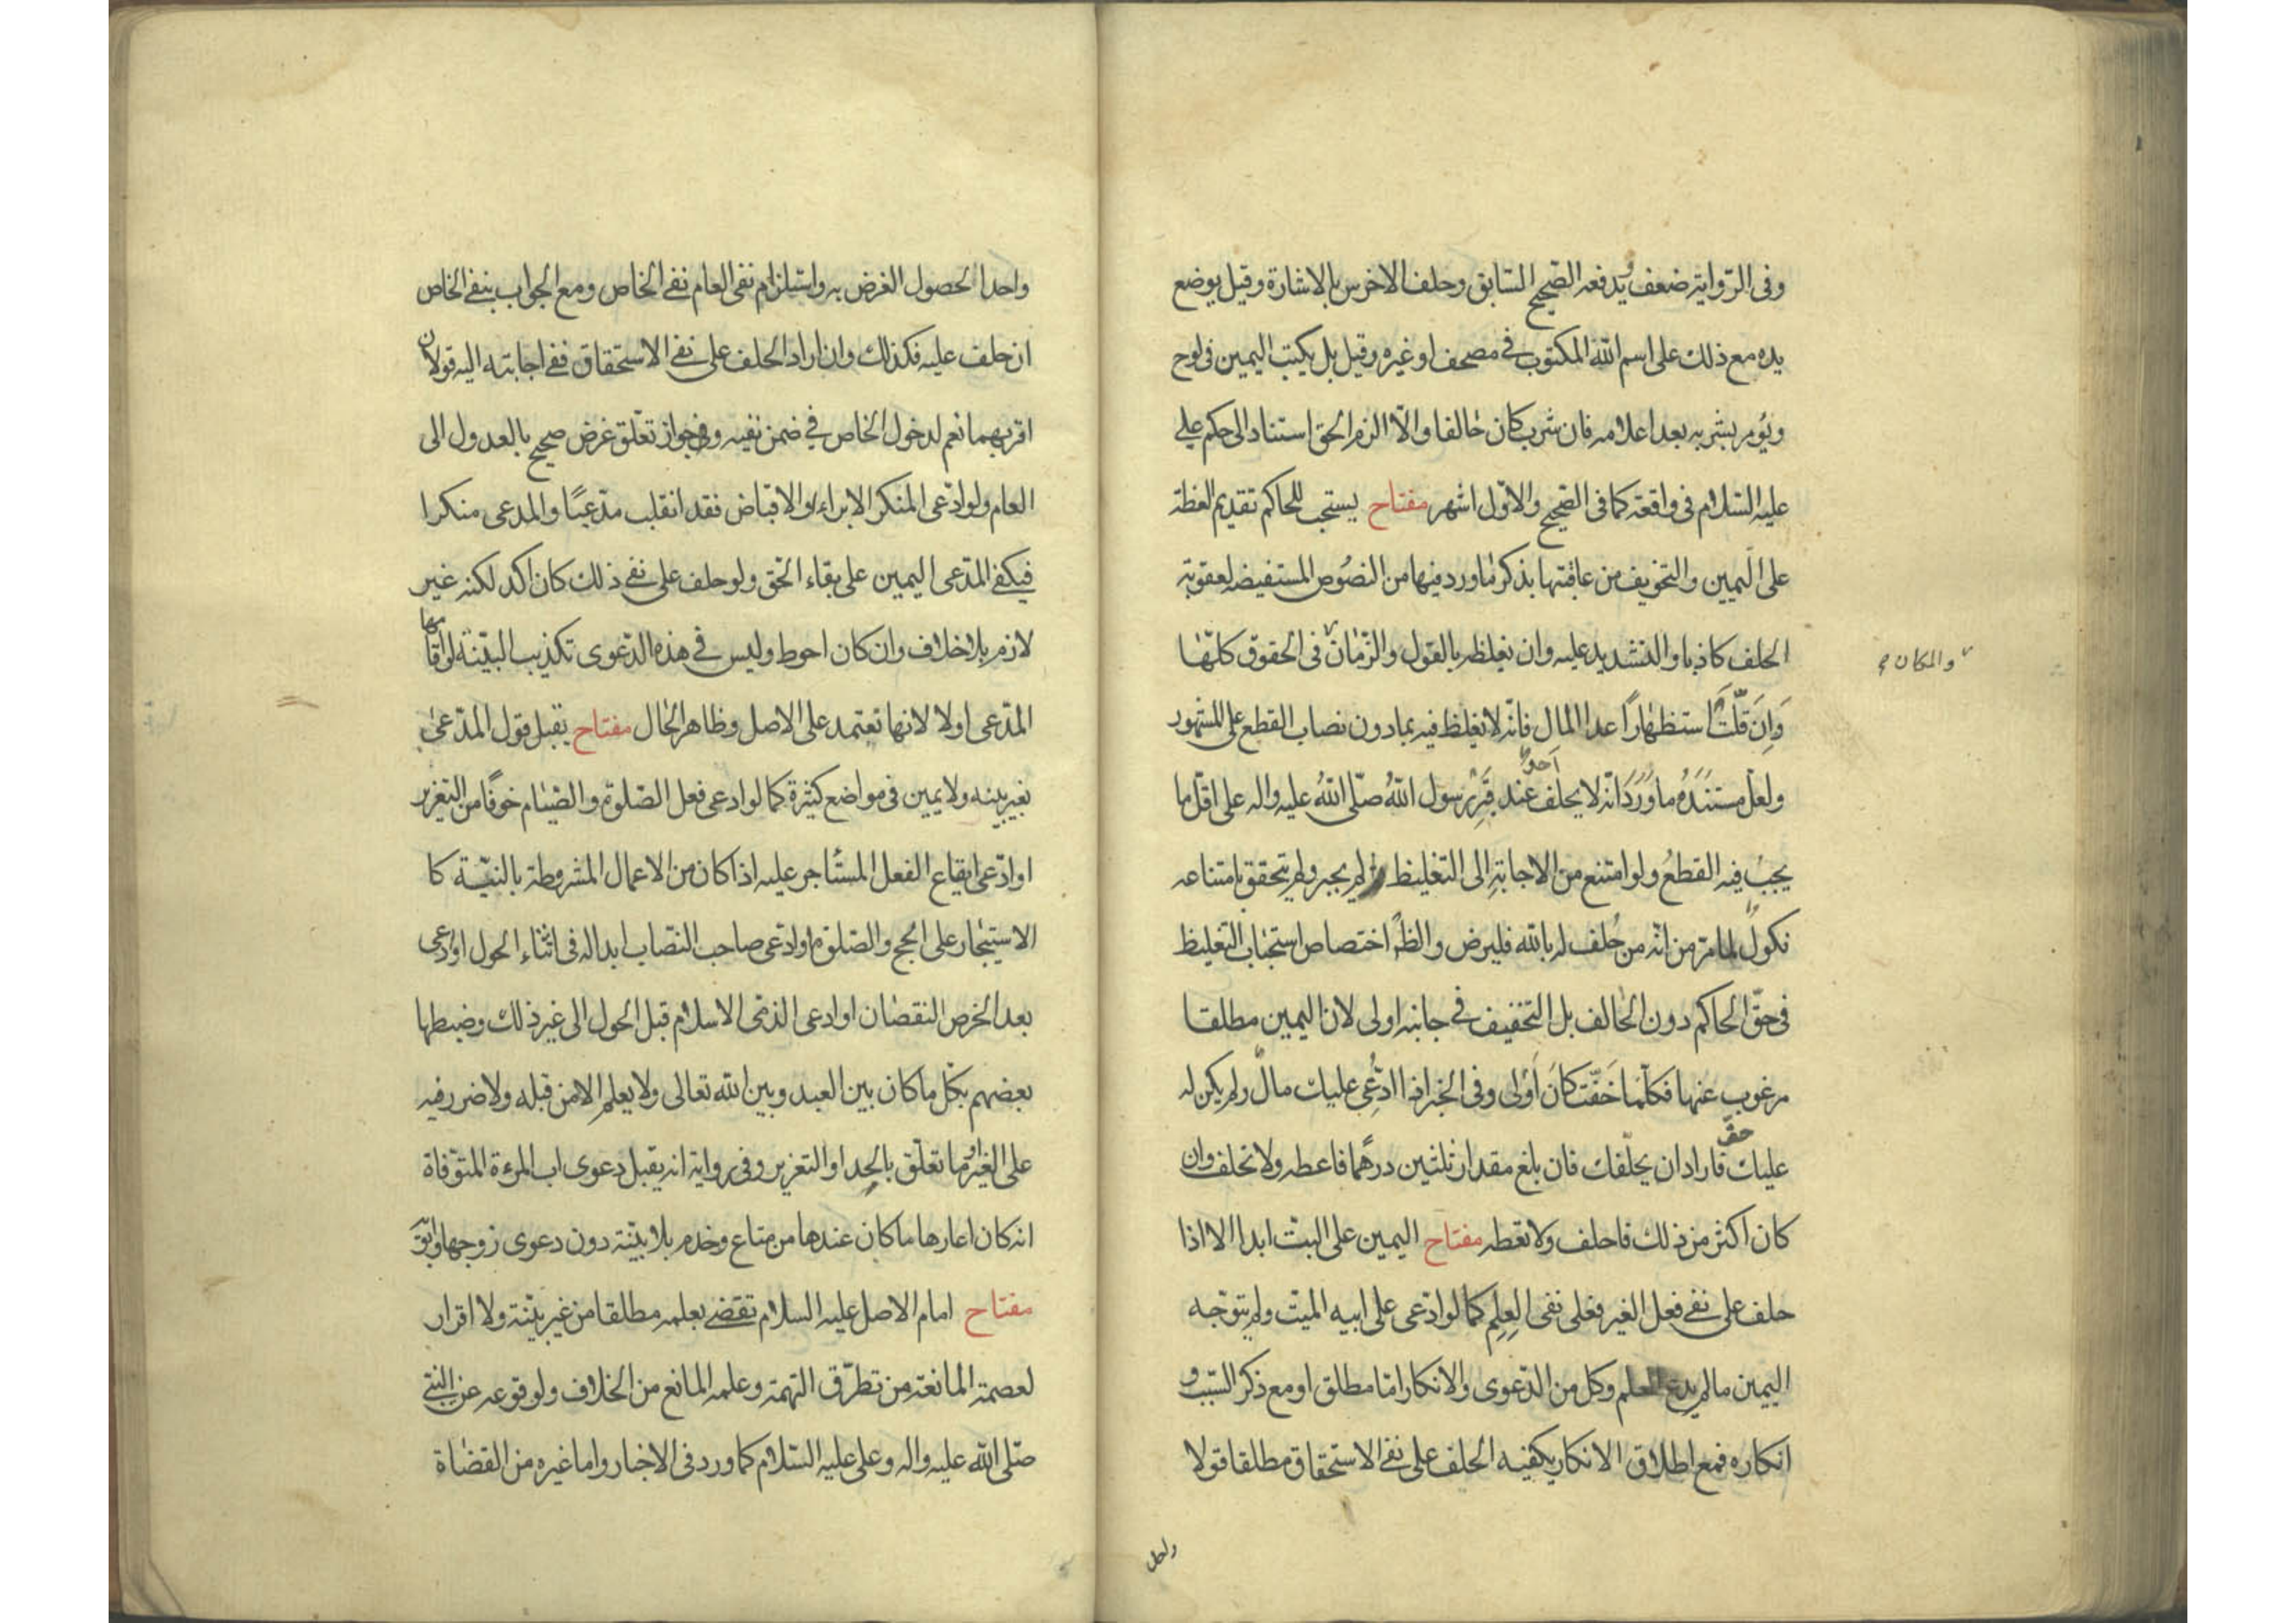 وفى الرّواية ضعف ويدفعه الصّحيح السّابق وحلف الاخرس بالاشارة وقيل يوضع
يده مع ذلك على اسم اللّه المكتوب فى مصحف او غيره وقيل بل يكتب اليمين فى لوح
ويُومر بشربه بعد اعلامه فان شرب كان حالفا والّا الزم الحق استنادا الى حكم على
عليه السّلام فى واقعة كما فى الصّحيح والاوّل اشهر مفتاح يستحب للحاكم تقديم العظة
على اليمين والتخويف من عاقبتها بذكر ما ورد فيها من النصُوص المستفيضه لعقوبة
الحلف كاذبا والتشديد عليه وان يغلظه بالقول والزّمان فى الحقوق كلّها
والمكان
وَاِن قلّت استظهارًا عدا المال فانّه لا يغلظ فيه بما دون نصاب القطع على المشهور
ولعل مستندهُ ما وَرَدَ انّه لا يحلف احدٌ عند قبر رسول اللّهُ صلّى اللّهُ عليه واله على اقلّ ما
يجبُ فيه القطعُ ولو امتنع من الاجابةِ الى التغليظ لم يجبر ولم يتحقق بامتناعه
نكولٌ لما مرّ من انّه من حُلف له باللّه فليرض والظّ اختصاص استحباب التغليظ
فى حقّ الحاكم دون الحالف بل التخفيف فى جانبه اولى لان اليمين مطلقا
مرغوب عنها فكلّما خَفّت كانَ اَولى وفى الخبر اذا ادّعِى عليك مالٌ ولم يكن له
عليك حق فاراد ان يحلّفك فان بلغ مقدار ثلثين درهًما فاعطه ولا تحلف وان
كان اكثر من ذلك فاحلف ولا تعطه مفتاح اليمين على البتّ ابدا الا اذا
حلف على نفى فعل الغير فعلى نفى العلم كما لو ادّعى على ابيه الميّت ولم يتوجّه
اليمين ما لم يدع العلم وكل من الدّعوى والانكار امّا مطلق او مع ذكر السّبب و
انكاره فمع اطلاق الانكار يكفيه الحلف على نفى الاستحقاق مطلقا قولا
واحدا
واحدا لحصول الغرض به واستلزام نفى العام نفى الخاص ومع الجواب بنفى الخاص
ان حلف عليه فكذلك وان اراد الحلف على نفى الاستحقاق ففى اجابته اليه قولان
اقربهما نعم لدخول الخاص فى ضمن نفيه وجواز تعلّق غرض صحيح بالعدول الى
العام ولو ادّعى المنكر الابراء او الاقباض فقد انقلب مدّعيًا والمدعى منكرا
فيكفى المدّعى اليمين على بقاء الحق ولو حلف على نفى ذلك كان اكد لكنه غير
لازم بلا خلاف وان كان احوط وليس فى هذه الدّعوى تكذيب البيّنة لو اقامها
المدّعى اولا لانها تعتمد على الاصل وظاهر الحال مفتاح يقبل قول المدّعى
بغير بينه ولا يمين فى مواضع كثيرة كما لو ادعى فعل الصّلوة والصّيام خوفًا من التعزير
او ادّعى ايقاع الفعل المستأجر عليه اذا كان من الاعمال المشروطة بالنيّة كا
الاستيجار على الحج والصّلوة او ادّعى صاحب النصّاب ابداله فى اثناء الحول او ادعى
بعد الخرص النقصان او ادعى الذمّى الاسلام قبل الحول الى غير ذلك وضبطها
بعضهم بكلّ ما كان بين العبد وبين اللّه تعالى ولا يعلم الا من قبله ولا ضرر فيه
على الغير او ما تعلّق بالحد او التعزير وفى رواية انه يقبل دعوى اب المرءة المتوّفاة
انه كان اعارها ما كان عندها من متاع وخدم بلا بيّنة دون دعوى زوجها
مفتاح امام الاصل عليه السلام تقضى بعلمه مطلقا من غير بيّنة ولا اقرار
لعصمة المانعة من تطرّق التهمة وعلمه المانع من الخلاف ولوقوعه عن النبى
صلى اللّه عليه واله وعلى عليه السّلام كما ورد فى الاخبار واما غيره من القضاة